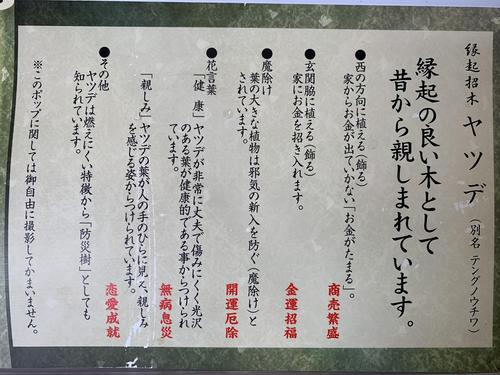 縁起招木 ヤツデ (別名 テングノウチワ)
縁起の良い木として
昔から親しまれています。
●西の方向に植える(飾る)
家からお金が出ていかない「お金がたまる」。
商売繁盛
●玄関脇に植える(飾る)
家にお金を招き入れます。
金運招福
●魔除け
葉の大きな植物は邪気の新入を防ぐ(魔除け)と
されています。
開運厄除
●花言葉
「健 康」ヤツデが非常に丈夫で傷みにくく光沢
のある葉が健康的である事からつけられ
ています。
無病息災
「親しみ」ヤツデの葉が人の手のひらに見え、親しみ
を感じる姿からつけられています。
恋愛成就
●その他
ヤツデは燃えにくい特徴から「防災樹」としても
知られています。
※このポップに関しては御自由に撮影してかまいません。